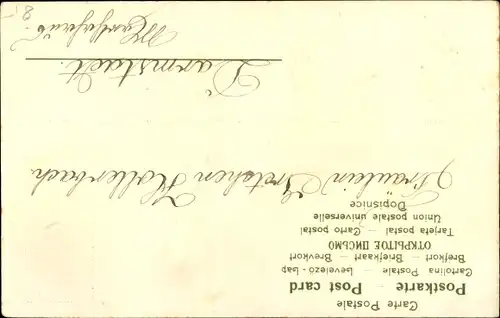 Carte Postale
Postkarte — Post card
Cartolina Postale — Levelező-Lap
Brefkort — Briefkaart — Brevkort
ОТКРЫТОЕ ПИСЬМО
Tarjeta postal — Carto postal
Union postale universelle
Dopisnice
Fräulein Gretchen Hollerbach
Darmstadt.
8